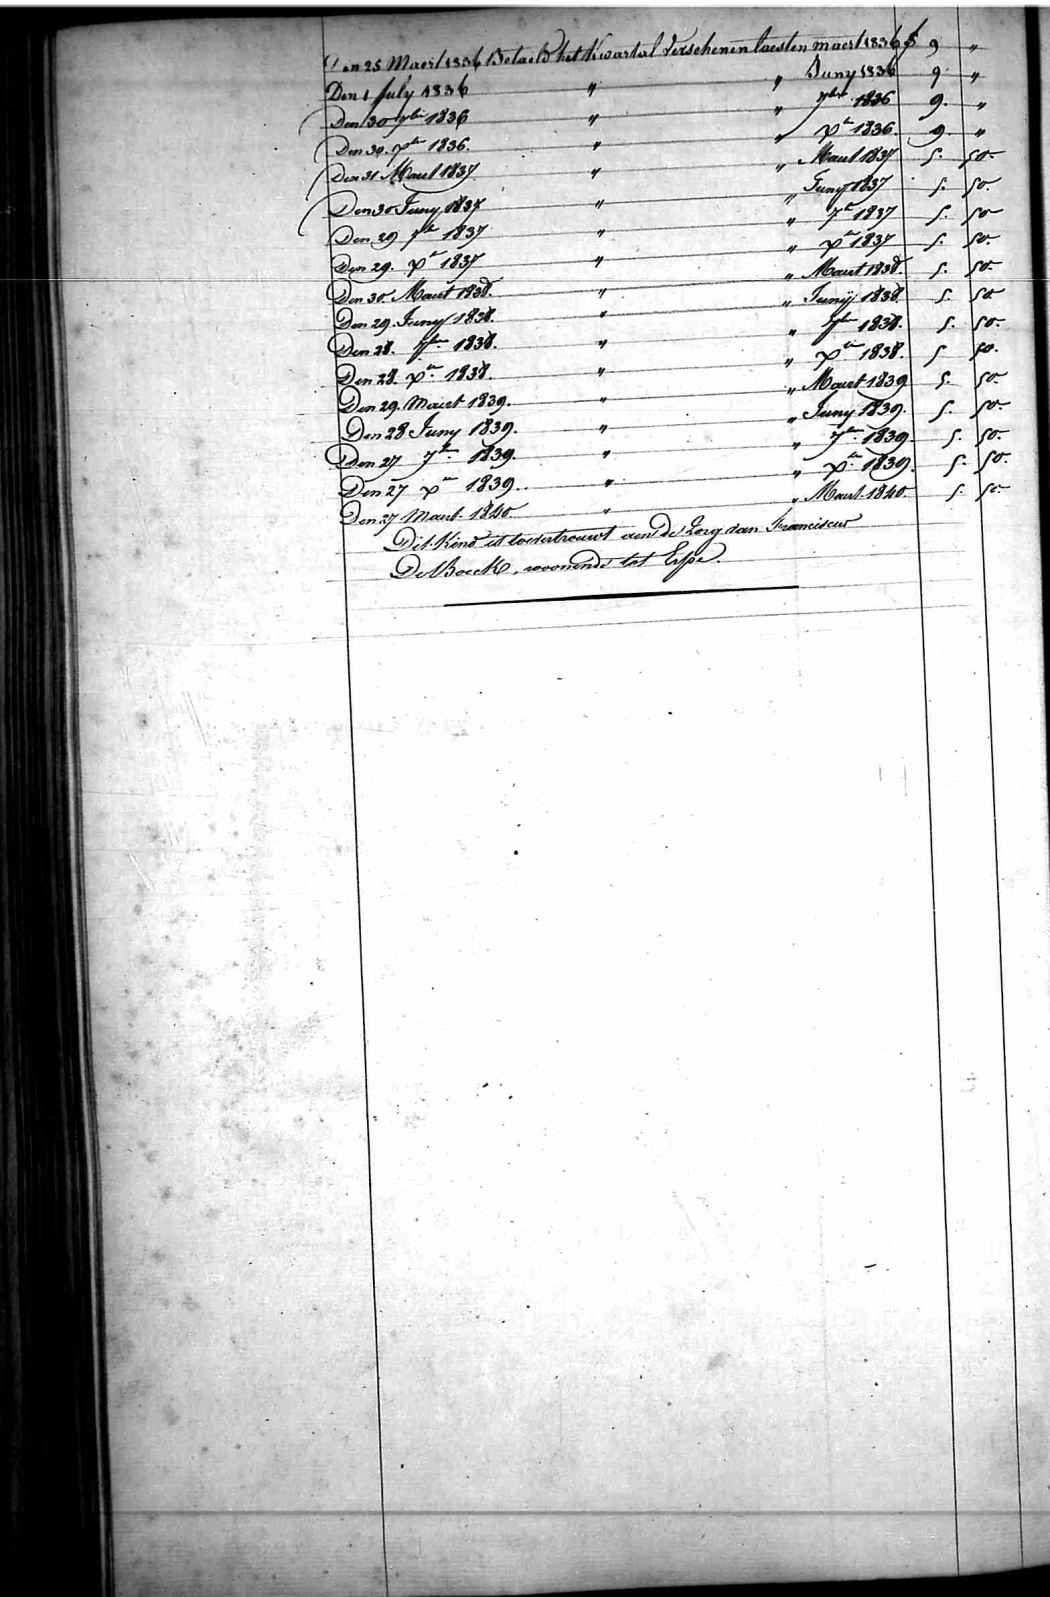 Den 25 Maert 1836 Betaeld het Kwartal Verschenen laesten maert 1836 f 9 "
Den 1 July 1836 " " Juny 1836 9 "
Den 30 7bre 1836 " " 7bre 1836 9. "
Den 30. xbre 1836. " " xbre 1836. 9. "
Den 31 Maert 1837 " " Maert 1837 5. 50.
Den 30 Juny 1837 " " Juny 1837 5. 50.
Den 29 7bre 1837 " " 7bre 1837 5. 50
Den 29. xbre 1837 " " xbre 1837 5. 50.
Den 30 Maert 1838. " " Maert 1838. 5. 50.
Den 29. Juny 1838. " " Juny 1838. 5. 50.
Den 28. 7bre 1838. " " 7bre 1838. 5. 50.
Den 28. xbre 1838. " " xbre 1838. 5 50.
Den 29. Maert 1839. " " Maert 1839 5. 50.
Den 28 Juny 1839. " " Juny 1839. 5. 50.
Den 27 7bre 1839. " " 7bre 1839. 5. 50.
Den 27 xbre 1839. " " xbre 1839. 5. 50.
Den 27 Maert 1840 " " Maert 1840 5. 50.
Dit Kind is toevertrouwt aen de Zorg van Franciscus
De Boeck, woonende tot Erpe.